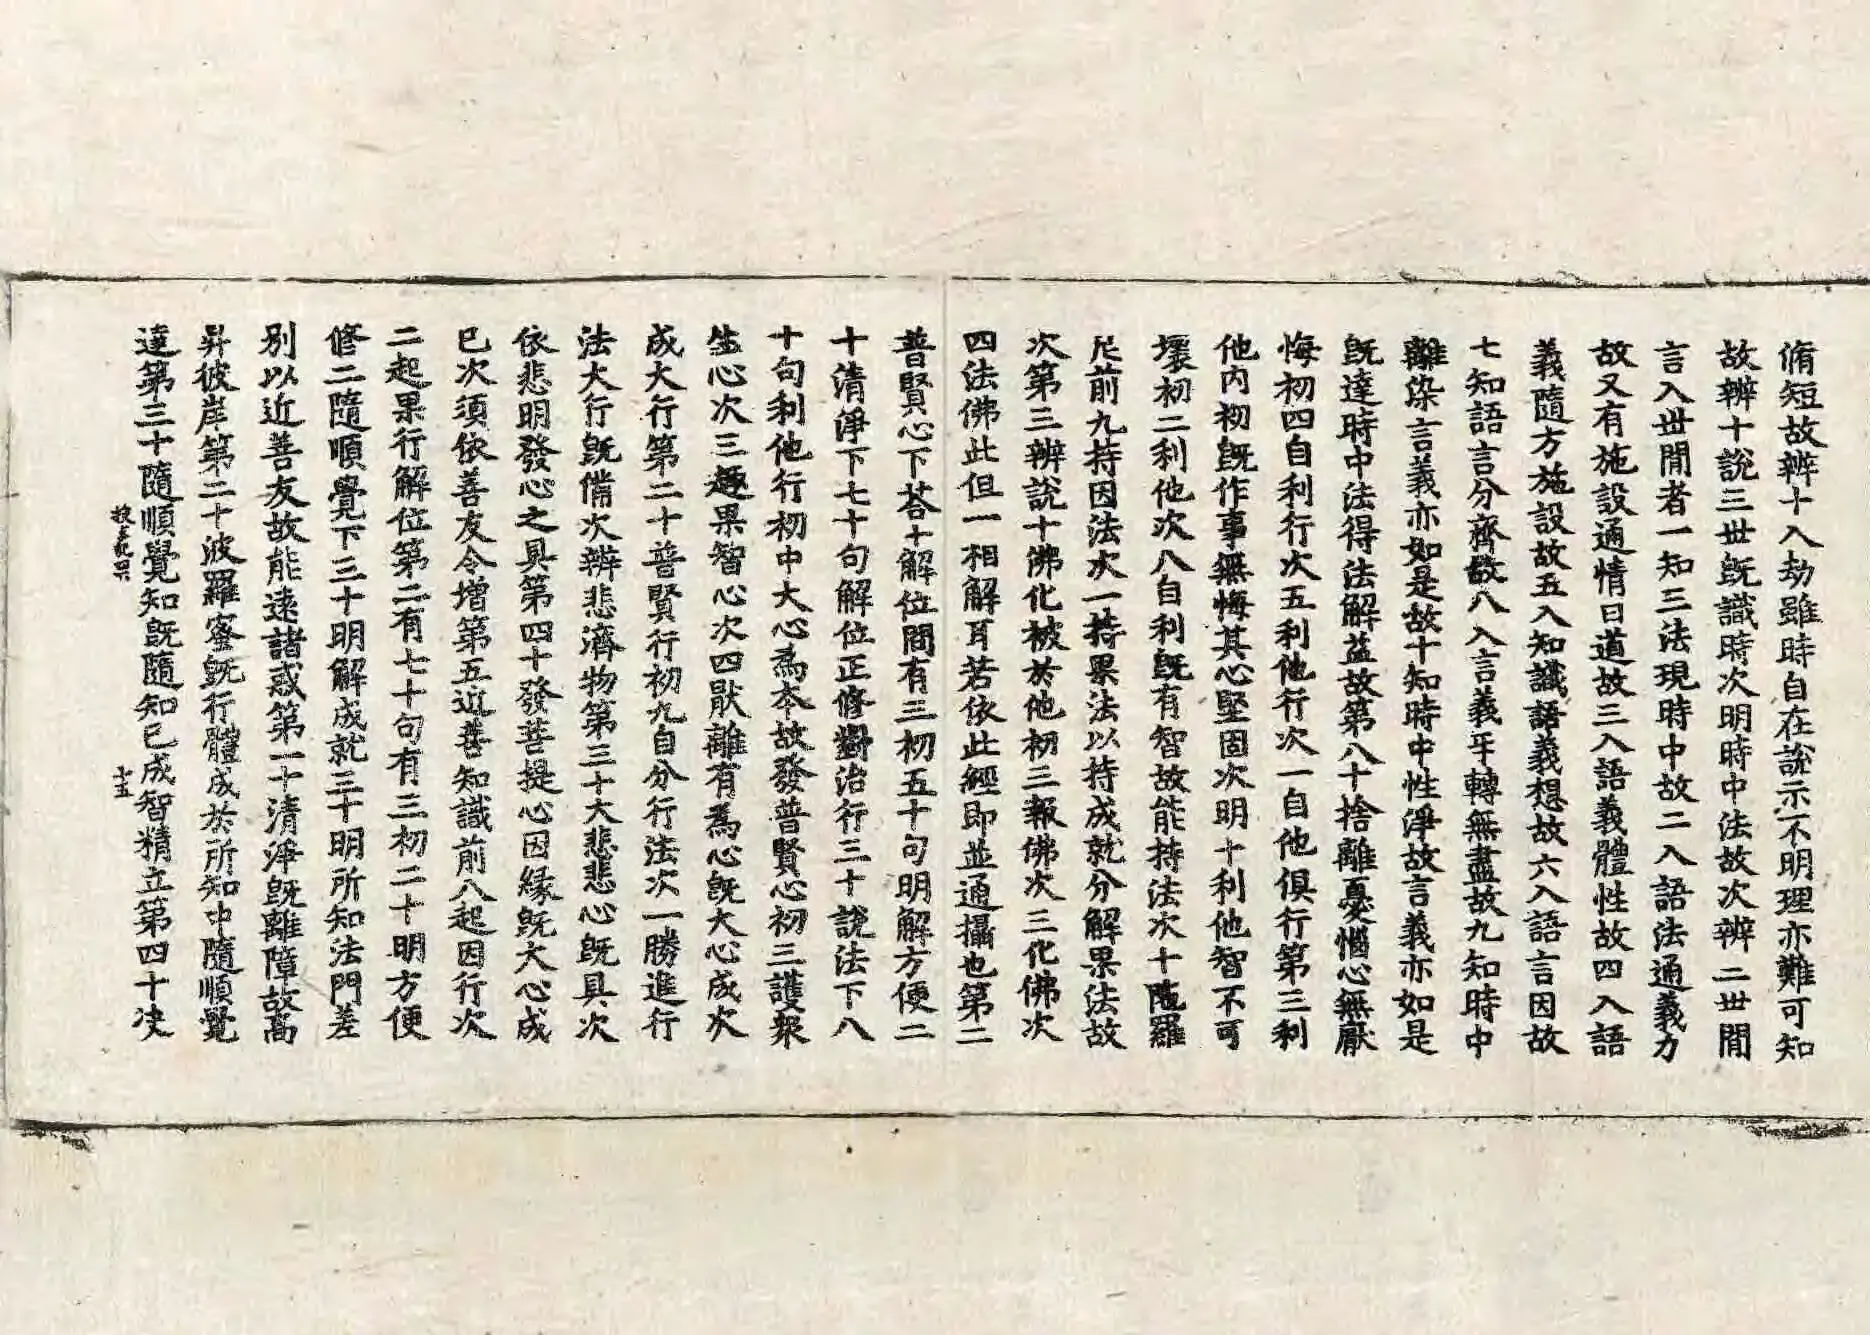 脩短故辨十入劫雖時自在說示不明理亦難可知
故辨十說三世既識時次明時中法故次辨二世間
言入世間者一知三法現時中故二入語法通義力
故又有施設通情曰道故三入語義體性故四入語
義隨方施設故五入知識語義想故六入語言因故
七知語言分齊故八入言義㸦轉無盡故九知時中
離染言義亦如是故十知時中性淨故言義亦如是
既達時中法得法解益故第八十捨離憂惱心無厭
悔初四自利行次五利他行次一自他俱行第三利
他內初既作事無悔其心堅固次明十利他智不可
壞初二利他次八自利既有智故能持法次十陁羅
尼前九持因法次一持果法以持成就分解果法故
次第三辨說十佛化被於他初三報佛次三化佛次
四法佛此但一相解耳若依此經即並通攝也第二
普賢心下荅十解位問有三初五十句明解方便二
十清淨下七十句解位正修對治行三十說法下八
十句利他行初中大心為本故發普賢心初三護衆
生心次三趣果智心次四猒離有為心既大心成次
成大行第二十普賢行初九自分行法次一勝進行
法大行既備次辨悲濟物第三十大悲悲心既具次
依悲明發心之具第四十發菩提心因緣既大心成
已次須依善友令增第五近善知識前八起因行次
二起果行解位第二有七十句有三初二十明方便
修二隨順覺下三十明解成就三十明所知法門差
別以近善友故能遠諸惑第一十清淨既離障故高
昇彼岸第二十波羅蜜既行體成於所知中隨順覺
達第三十隨順覺知既隨知已成智精立第四十決
搜玄記四 十五